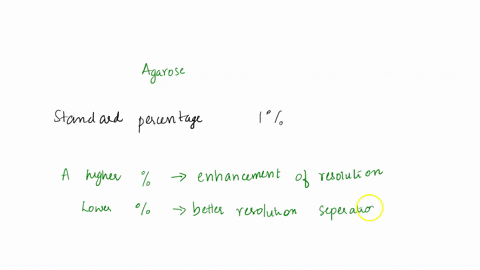 Agarose
Standard percentage 1%
A higher % → enhancement of resolution
Lower % → better resolution seperatio